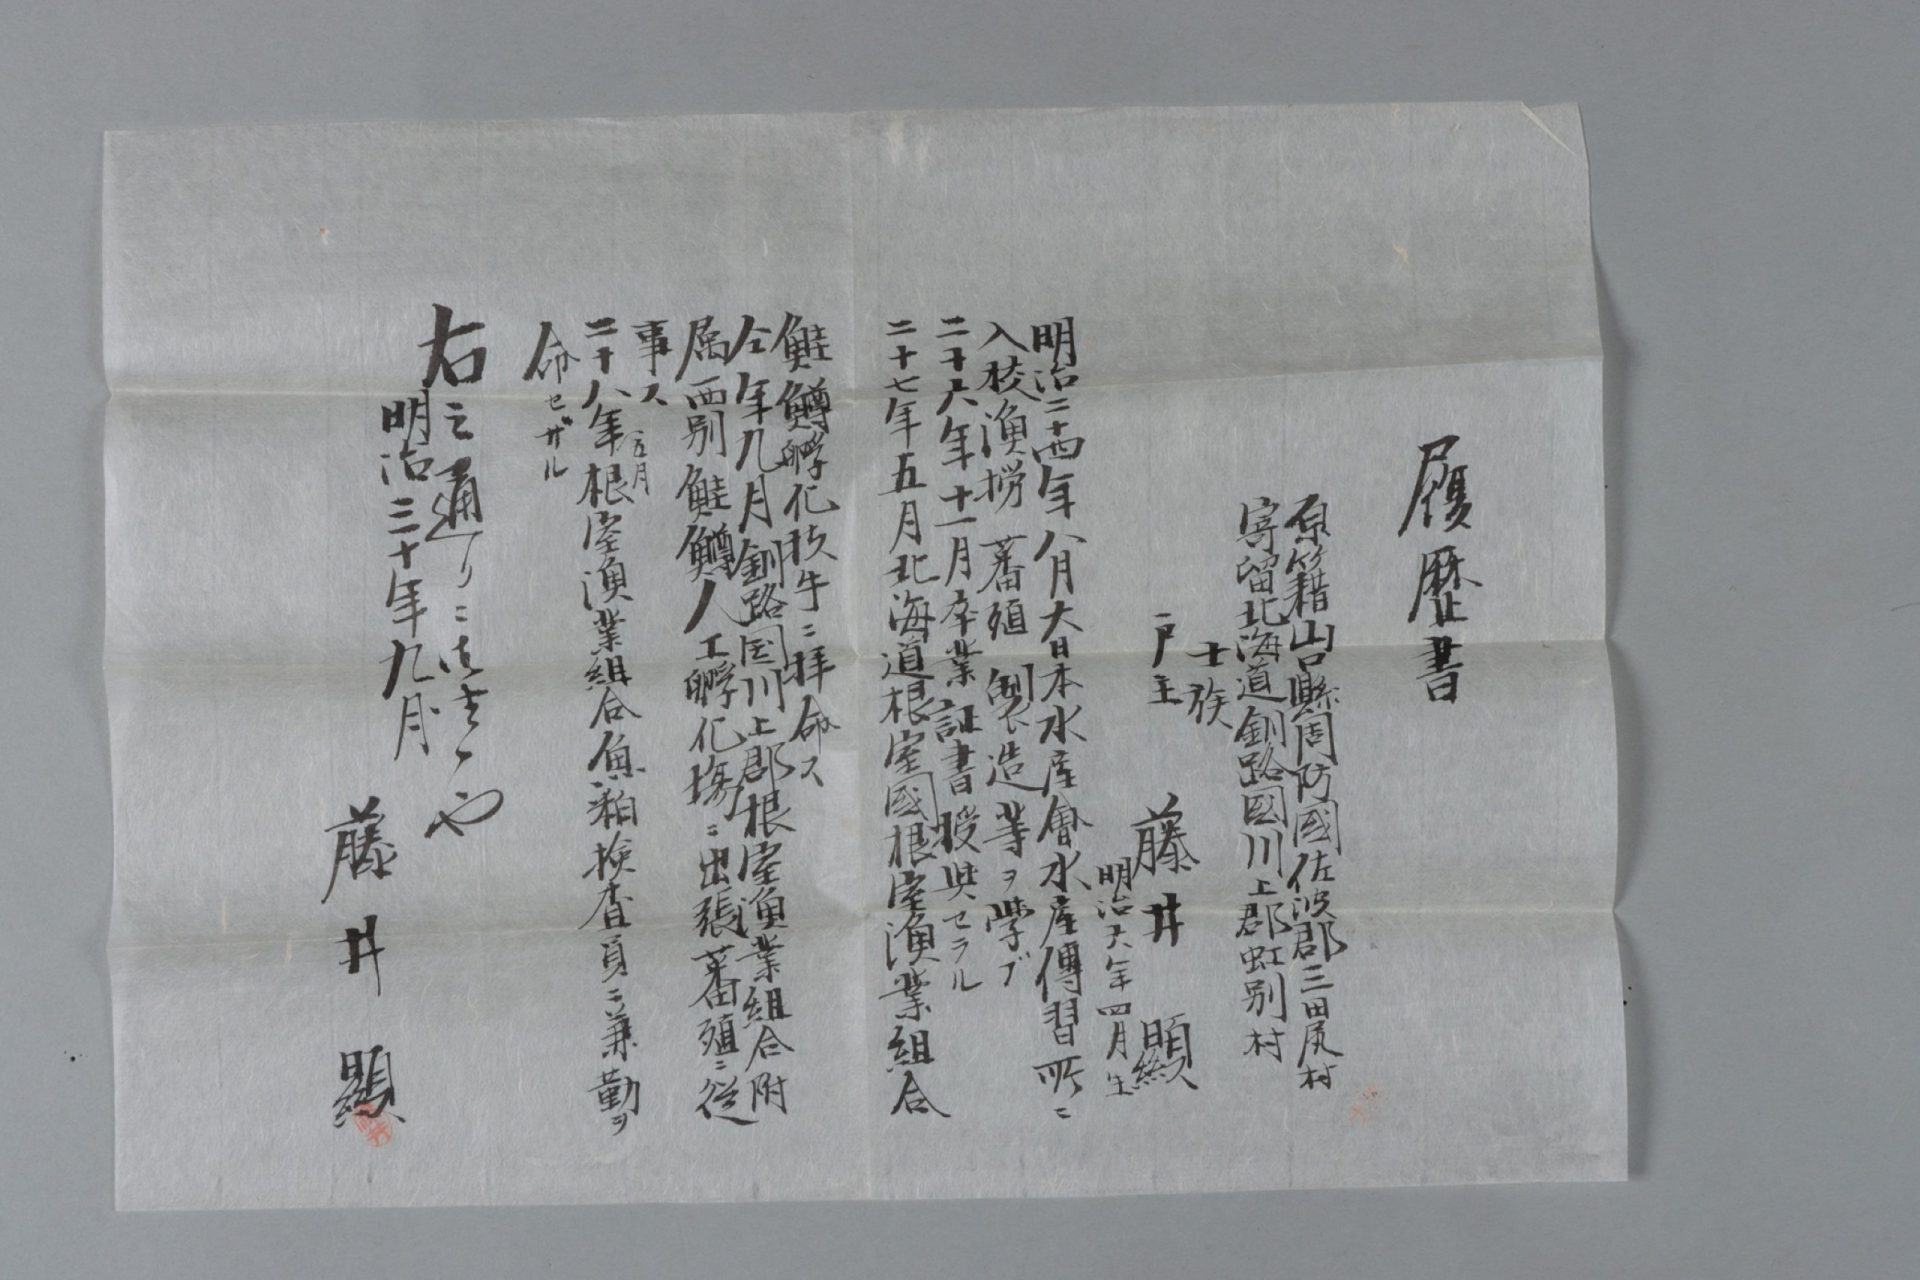 履歴書
原籍山口縣周防國佐波郡三田尻村
寄留北海道釧路國川上郡虹別村
士族
戸主
藤井顯
明治六年四月生
明治二十四年八月大日本水産會水産傳習所ニ
入校漁撈蕃殖製造等ヲ学ブ
二十六年十一月卒業証書授與セラル
二十七年五月北海道根室國根室漁業組合
鮭鱒孵化技手ニ拝命ス
仝年九月釧路国川上郡根室漁業組合附
属西別鮭鱒人工孵化場ニ出張蕃殖ニ従
事ス
二十八年五月根室漁業組合魚粕検査員ニ兼勤ヲ
命セザル
右之通リニ
明治三十年九月
藤井顯